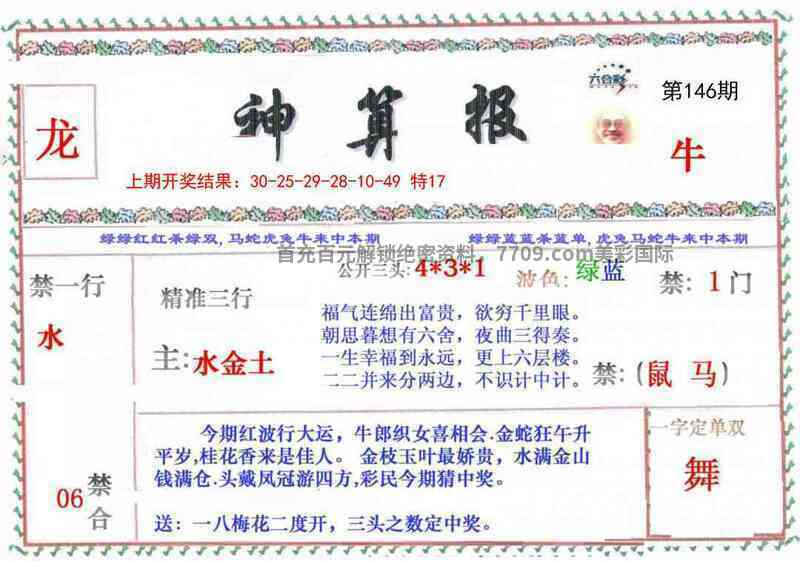 六合彩
第146期
龙
神算报
牛
上期开奖结果：30-25-29-28-10-49 特17
绿绿红红杀绿双,马蛇虎兔牛来中本期
绿绿蓝蓝杀蓝单,虎兔马蛇牛来中本期
首充百元解锁绝密资料，7709.com美彩国际
禁一行
水
精准三行
主:水金土
公开三头:4*3*1
波色:绿蓝
禁:1门
福气连绵出富贵，欲穷千里眼。
朝思暮想有六舍，夜曲三得奏。
一生幸福到永远，更上六层楼。
二二并来分两边，不识计中计。
禁:(鼠 马)
06
禁合
今期红波行大运，牛郎织女喜相会.金蛇狂午升
平岁,桂花香来是佳人。 金枝玉叶最娇贵，水满金山
钱满仓.头戴风冠游四方,彩民今期猜中奖。
送：一八梅花二度开，三头之数定中奖。
一字定单双
舞